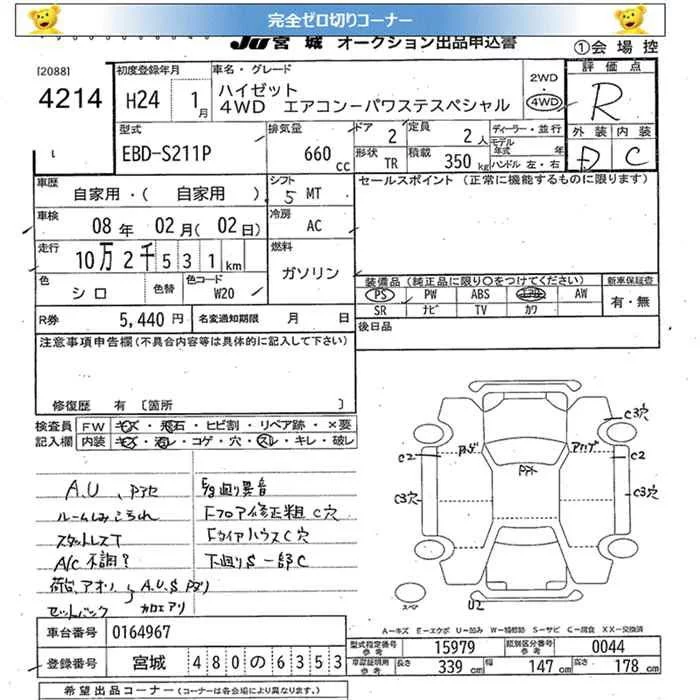 完全ゼロ切りコーナー
JU宮城 オークション出品申込書 ①会場控
[2088]
4214
初度登録年月 H24 1月
車名・グレード
ハイゼット
4WD エアコンーパワステスペシャル
2WD
・
4WD
評価点
R
型式
EBD-S211P
排気量
660 cc
ドア 2
定員 2人
ディーラー・並行
モデル年式 年
形状 TR
積載 350 kg
ハンドル 左・右
外装 内装
D C
車歴 自家用・( 自家用 )
シフト 5 MT
セールスポイント (正常に機能するものに限ります)
車検 08年 02月(02日)
冷房 AC
走行 10万2千531km
燃料 ガソリン
色 シロ 色替 色コード W20
装備品(純正品に限り○をつけてください) 新車保証書
PS PW ABS エアB AW
SR ナビ TV カワ
有・無
R券 5,440円 名変通知期限 月 日
後日品
注意事項申告欄(不具合内容等は具体的に記入して下さい)
修復歴 有 〔箇所 〕
検査員記入欄
FW キズ・飛石・ヒビ割・リペア跡・×要
内装 キズ・汚レ・コゲ・穴・スレ・キレ・破レ
A.U、Pアセ
ルームしみこられ
スタットレスT
A/C不調?
荷台、アオリ、A.U.S Pアリ
セットバック カロエアリ
E/g廻り異音
Fフロア修正粗 C穴
FタイヤハウスC穴
下廻りS一部C
C3穴
C2
C3穴
アゲ
アトゲ
Pアト
C2
C3穴
スペア
U2
A-キズ E-エクボ U-凹み W-補修跡 S-サビ C-腐食 XX-交換済
車台番号 0164967
登録番号 宮城 480の6353
型式指定番号 参考 15979
類別区分番号 参考 0044
車庫証明用 参考 長さ 339cm 幅 147cm 高さ 178cm
希望出品コーナー(コーナーは各会場により異なります。)